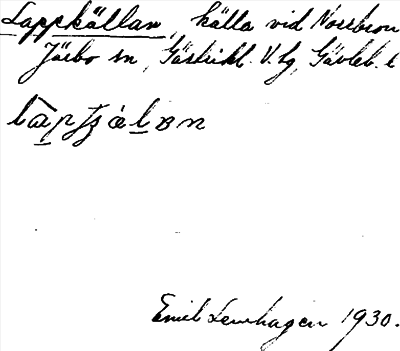 Lappkällan, källa vid Norrbron
Järbo sn, Gästrikl. V. tg, Gävleb. l.
Emil Lenhagen 1930.